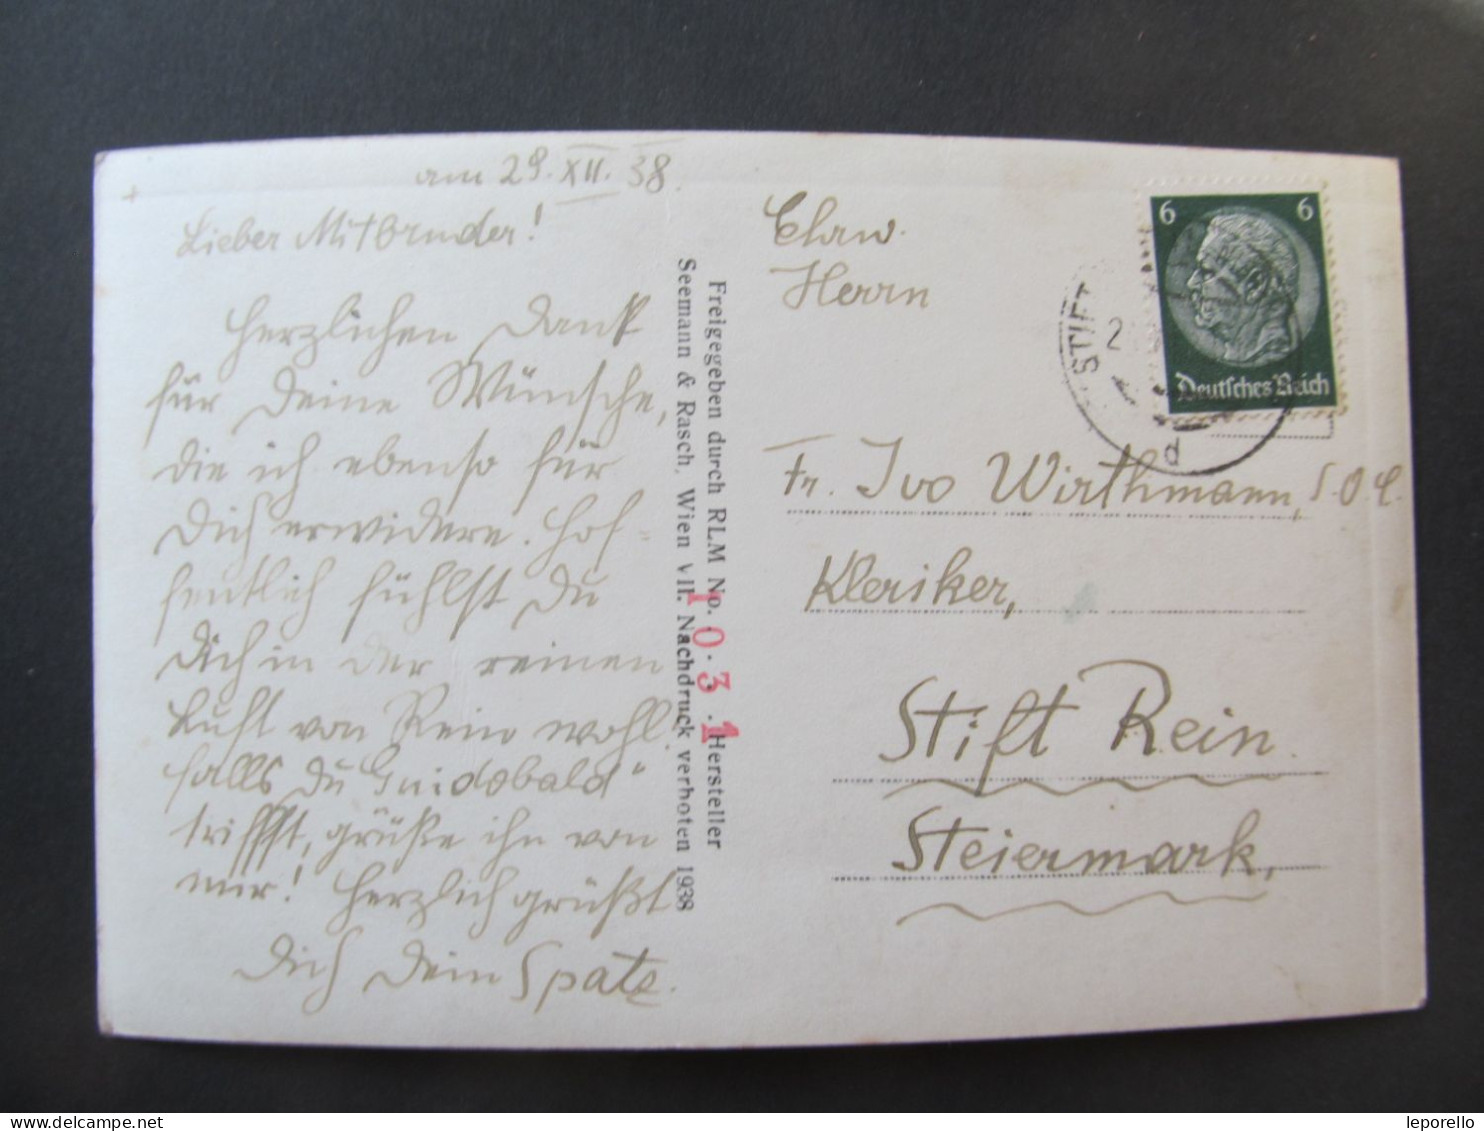 am 29. XII. 38.
Lieber Mitbruder!
Herzlichen Dank
für Deine Wünsche,
die ich ebenso für
Dich erwidere. Hof-
fentlich fühlst Du
Dich in der reinen
Luft von Rein wohl.
falls Du Guidobald"
triffst, grüße ihn von
mir! Herzlich grüßt
Dich Dein Spatz.
Freigegeben durch RLM No. 1031. Hersteller
Seemann & Rasch, Wien VII. Nachdruck verboten 1938
6 6
Deutsches Reich
STIFT
2
d
Ehrw.
Herrn
Fr. Ivo Wirthmann, S.O.C.
Kleriker,
Stift Rein
Steiermark,
leporello